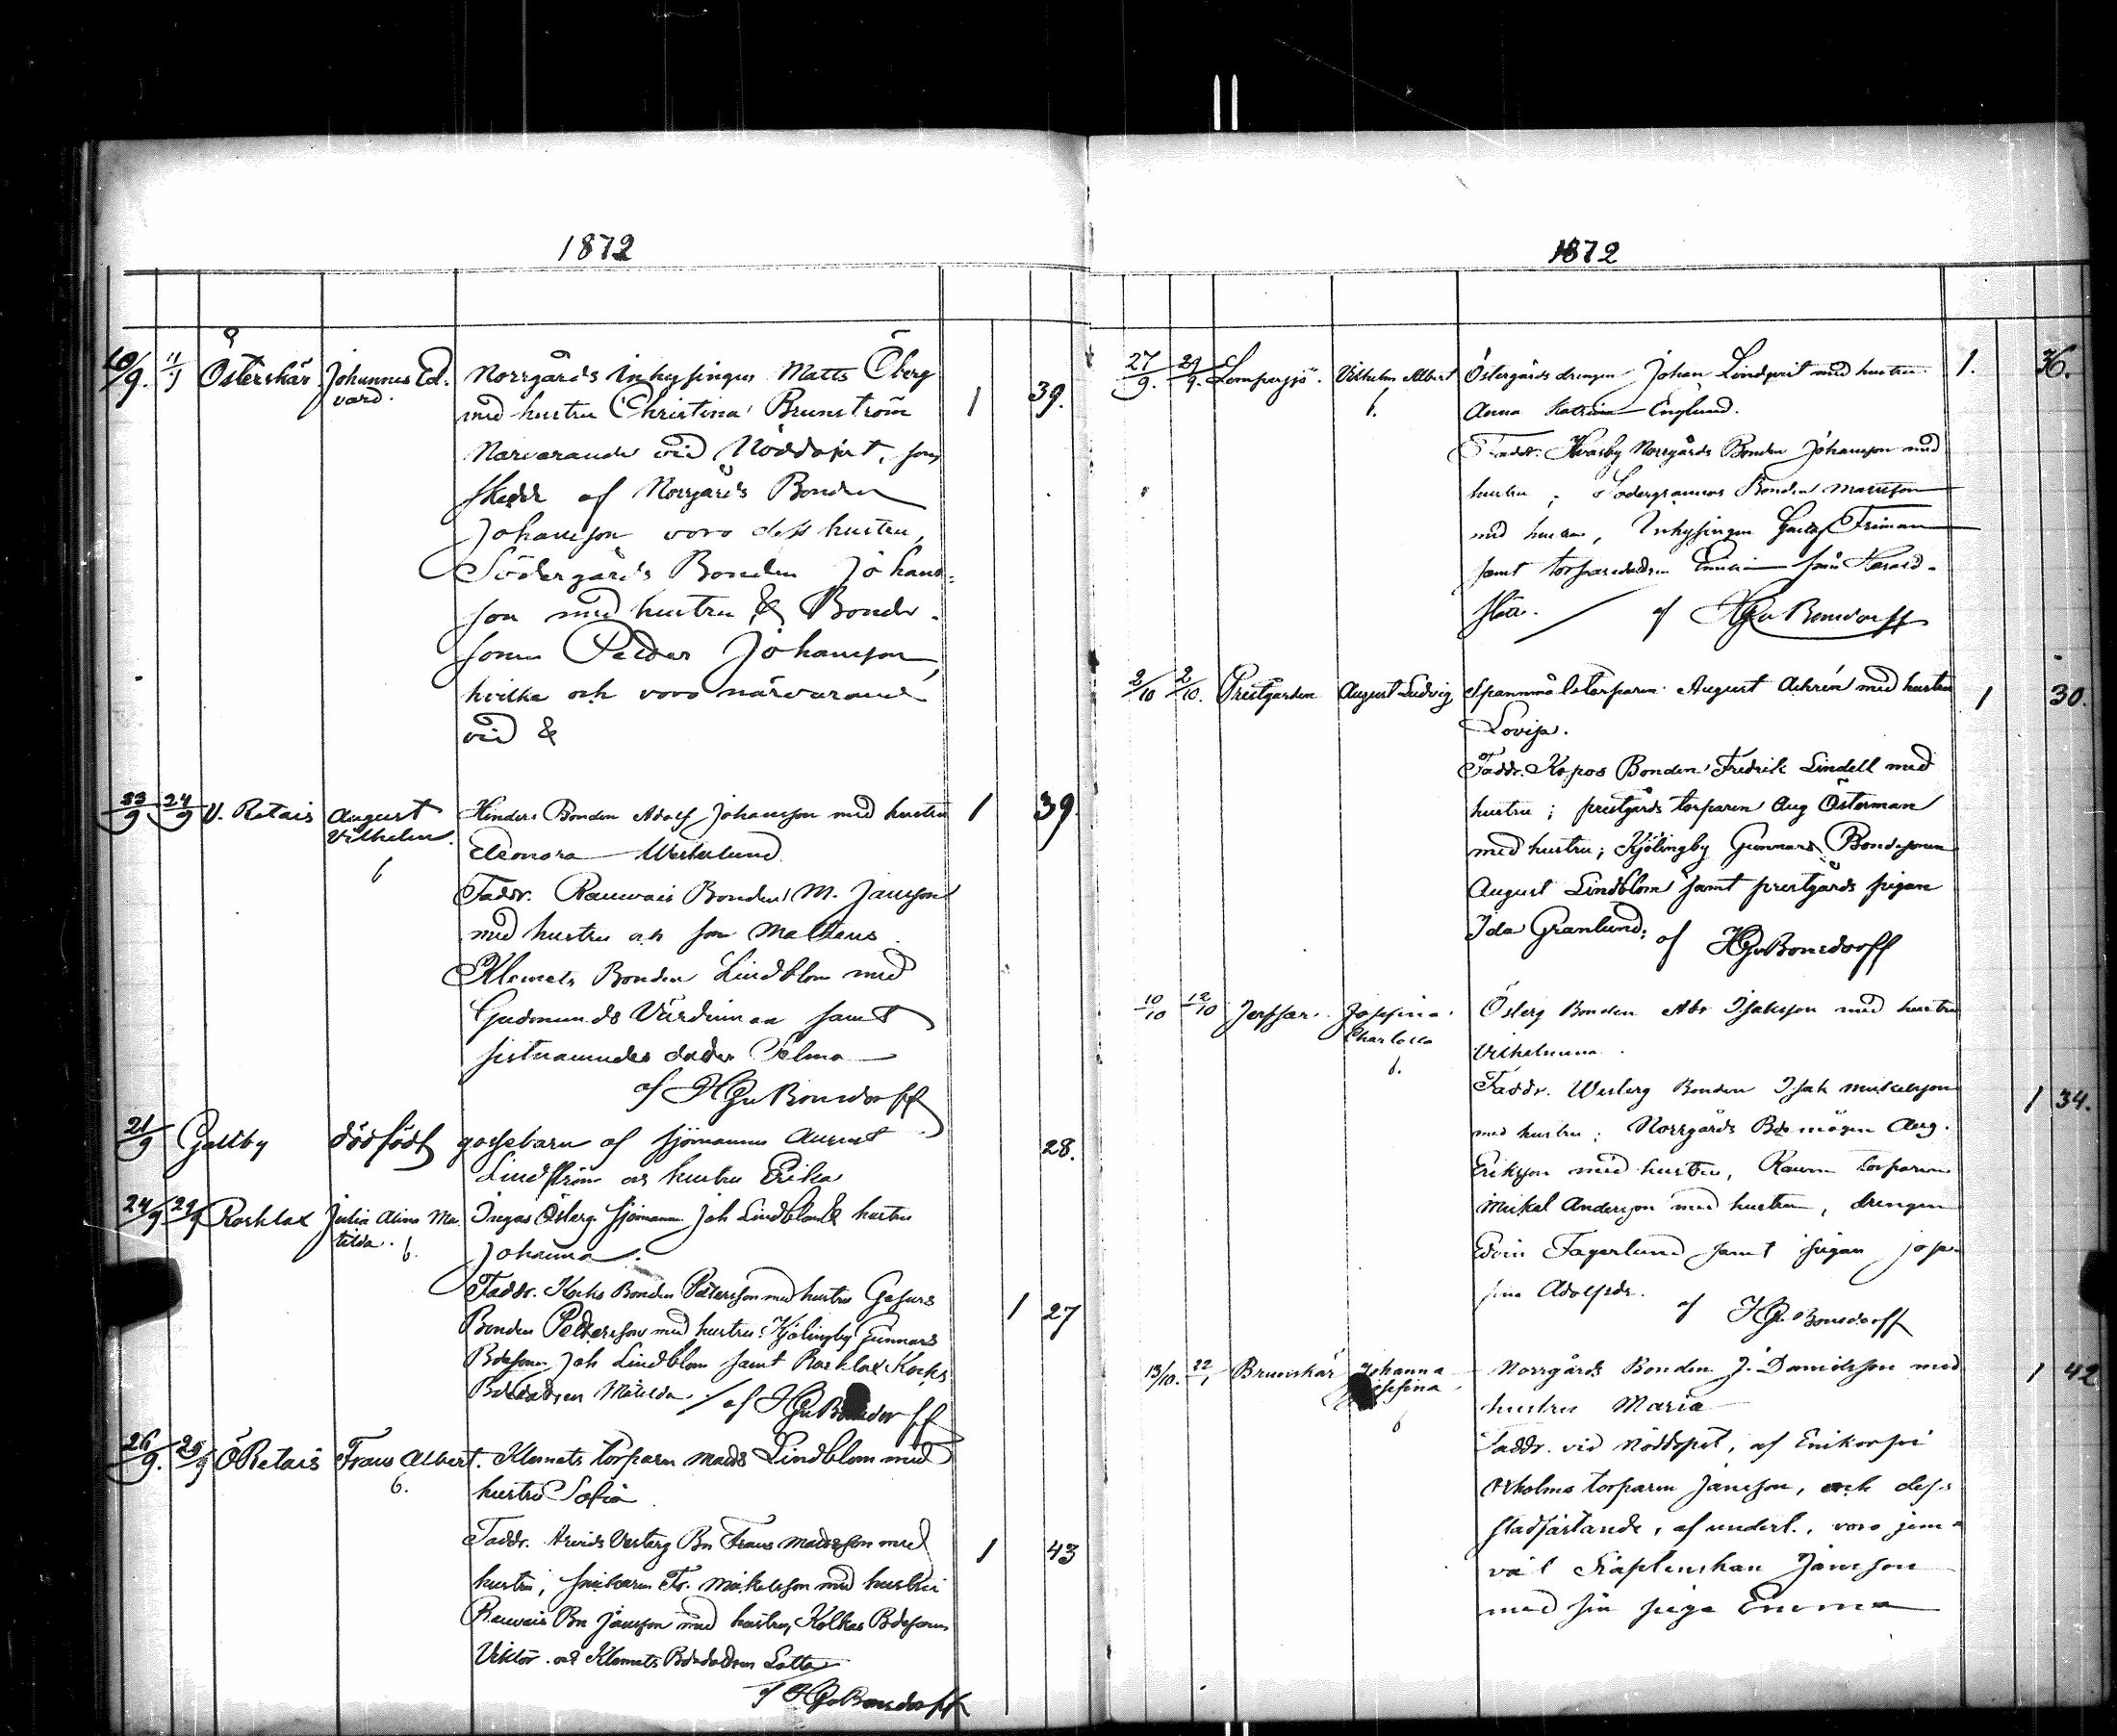 1872
10/9. 11/9 Österskär Johannes Ed- Norrgårds Inhysingen Matts Öberg
vard. med hustru Christina Brunström 1 39.
Närvarande vid Nöddopet, som
skedde af Norrgårds Bonden
Johansson voro dess hustru,
Södergårds Bonden Johans-
son med hustru & Bonde-
sonen Petter Johansson,
hvilka och voro närvarand
vid &
23/9 24/9 V. Retais August Hinders Bonden Adolf Johansson med hustru 1 39.
Vilhelm. Eleonora Westerlund
6
Faddr. Rauvais Bonden M. Jansson
med hustru och son Matheus.
Klemets Bonden Lindblom med
Gudmunds Värdinnan samt
sistnämndes dotter Selma
af HGvBonsdorff
21/9 Galtby dödfödt gossebarn af sjömannen August 28.
Lindström och hustru Erika
24/9 29/9 Roslax Julia Alina Ma- Ingas Österg. sjöman Joh Lindblom & hustru
tilda. 6. Johanna.
Faddr. Kocks Bonden Pettersson med hustru Gasurs
Bonden Pettersson med hustru; Kjölingby Gunnars 1 27
Bdesonen Joh Lindblom samt Roslax Kocks
Bdedottren Matilda. / af HGvBonsdorff
26/9. 29/9 Ö Retais Frans Albert. Klemets torparen Matts Lindblom med
6. hustru Sofia
Faddr. Arvids Vesterg Bn Frans Mattsson med 1 43
hustru; snickaren Fr. Mikelsson med hustru
Rauvais Bn Jansson med hustru, Kolkas Bdesonen
Viktor och Klemets Bdedottren Lotta
af HGvBonsdorff
1872
27/9. 29/9. Lempersjö. Vilhelm Albert Östergårds drengen Johan Lindqvist med hustru 1. 36.
6. Anna Katrina Englund.
Faddr. Hvarby Norrgårds Bonden Johansson med
hustru; Södergrannas Bonden Mattsson
med hustru, Inhysingen Gustaf Friman
samt torparedottren från Harald-
sholm. / af HGvBonsdorff
2/10 2/10. Prestgården August Ludvig Spannmålstorparen August Achrén med hustru 1 30.
Lovisa.
Faddr. Kopos Bonden Fredrik Lindell med
hustru; prestgårds torparen Aug Österman
med hustru; Kjölingby Gunnars Bondesonen
August Lindblom samt prestgårds pigan
Ida Granlund; af HGvBonsdorff
10/10 12/10 Josefina Österg Bonden Abr Isaksson med hustru
Charlotta Vilhelmina.
6.
Faddr. Westerg Bonden Isak Mickelsson 1 34.
med hustru; Norrgårds Bde mågen Aug.
Eriksson med hustru, torparen
Mickel Andersson med hustru, drengen
Edvin Fagerlund samt pigan Jose-
fina Adolfsdr. af HGvBonsdorff
13/10. 22/ Brunskär Johanna Norrgårds Bonden J. Danielsson med 1 42
Josefina hustru Maria
6
Faddr. vid Nöddopet, af Enkorpri
torparen Jansson, och dess
stadfästande, af undert., voro jem-
väl Kaptenskan Jansson
med sin piga Emma